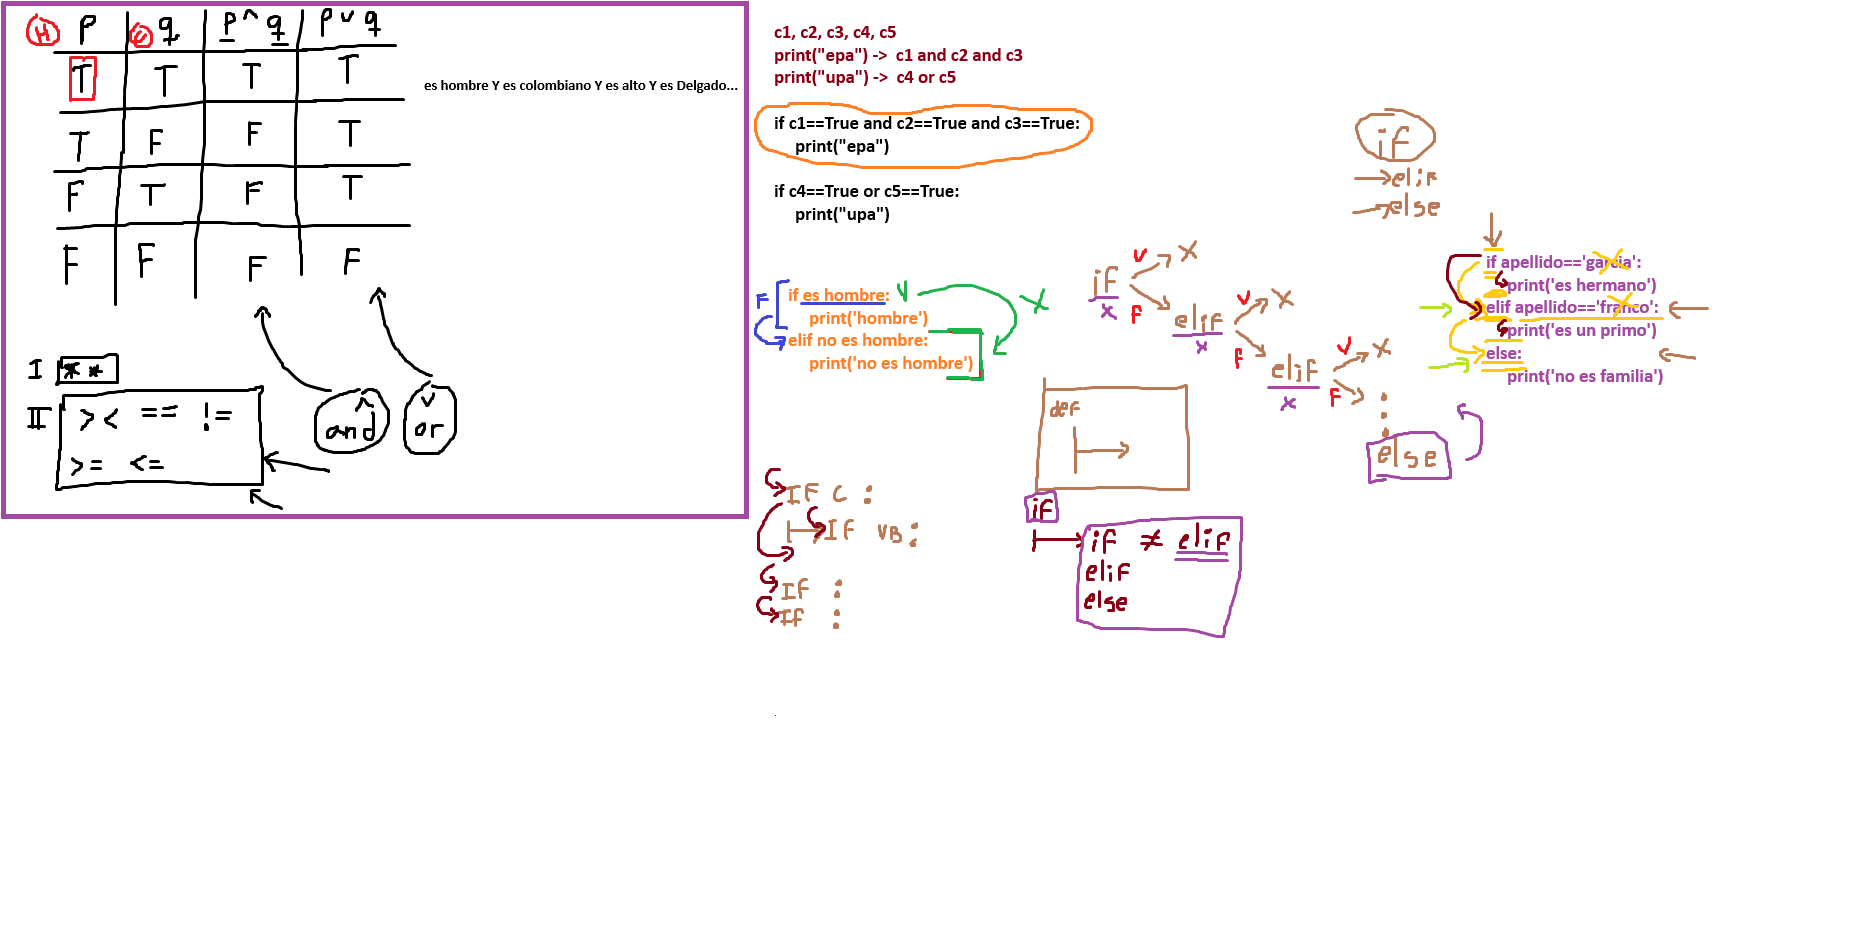 H p C q p ^ q p v q
T T T T
T F F T
F T F T
F F F F
es hombre Y es colombiano Y es alto Y es Delgado...
I **
II > < == !=
>= <=
^
and
v
or
c1, c2, c3, c4, c5
print("epa") -> c1 and c2 and c3
print("upa") -> c4 or c5
if c1==True and c2==True and c3==True:
print("epa")
if c4==True or c5==True:
print("upa")
F
if es hombre: V X
print('hombre')
elif no es hombre:
print('no es hombre')
if V X
x F
elif V X
x F
elif V X
x F
:
else
if
elif
else
if apellido=='garcia':
print('es hermano')
elif apellido=='franco':
print('es un primo')
else:
print('no es familia')
def
IF C :
IF VB :
IF :
If :
if
if ≠ elif
elif
else